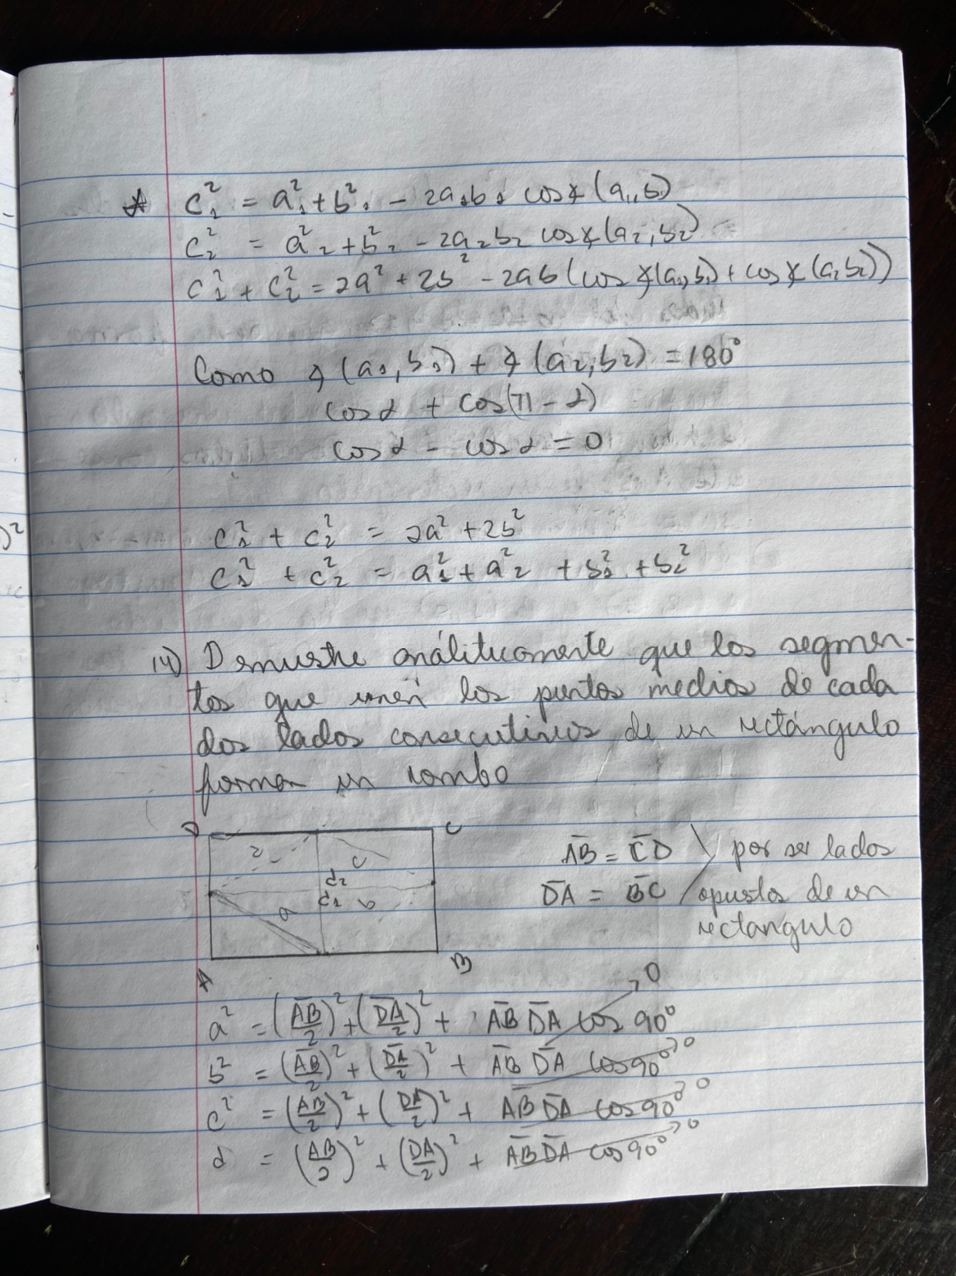 * c₁² = a₁² + b₁² - 2a₁b₁ cos∡(a₁,b₁)
c₂² = a₂² + b₂² - 2a₂b₂ cos∡(a₂,b₂)
c₁² + c₂² = 2a² + 2b² - 2ab (cos∡(a₁,b₁) + cos∡(a₂b₂))
Como ∡(a₁,b₁) + ∡(a₂,b₂) = 180°
cos α + cos(π - α)
cos α - cos α = 0
c₁² + c₂² = 2a² + 2b²
c₁² + c₂² = a₁² + a₂² + b₁² + b₂²
14) Demuestre análiticamente que los segmen-
tos que unen los puntos medios de cada
dos lados consecutivos de un rectángulo
forman un rombo
D C
d₂
d₁
a b c
A B
AB̅ = C̅D̅ } por ser lados
D̅A̅ = B̅C̅ opuestos de un
rectangulo
a² = (A̅B̅/2)² + (D̅A̅/2)² + A̅B̅ D̅A̅ cos 90° → 0
b² = (A̅B̅/2)² + (D̅A̅/2)² + A̅B̅ D̅A̅ cos 90° → 0
c² = (AB/2)² + (DA/2)² + A̅B̅ D̅A̅ cos 90° → 0
d = (AB/2)² + (DA/2)² + A̅B̅ D̅A̅ cos 90° → 0